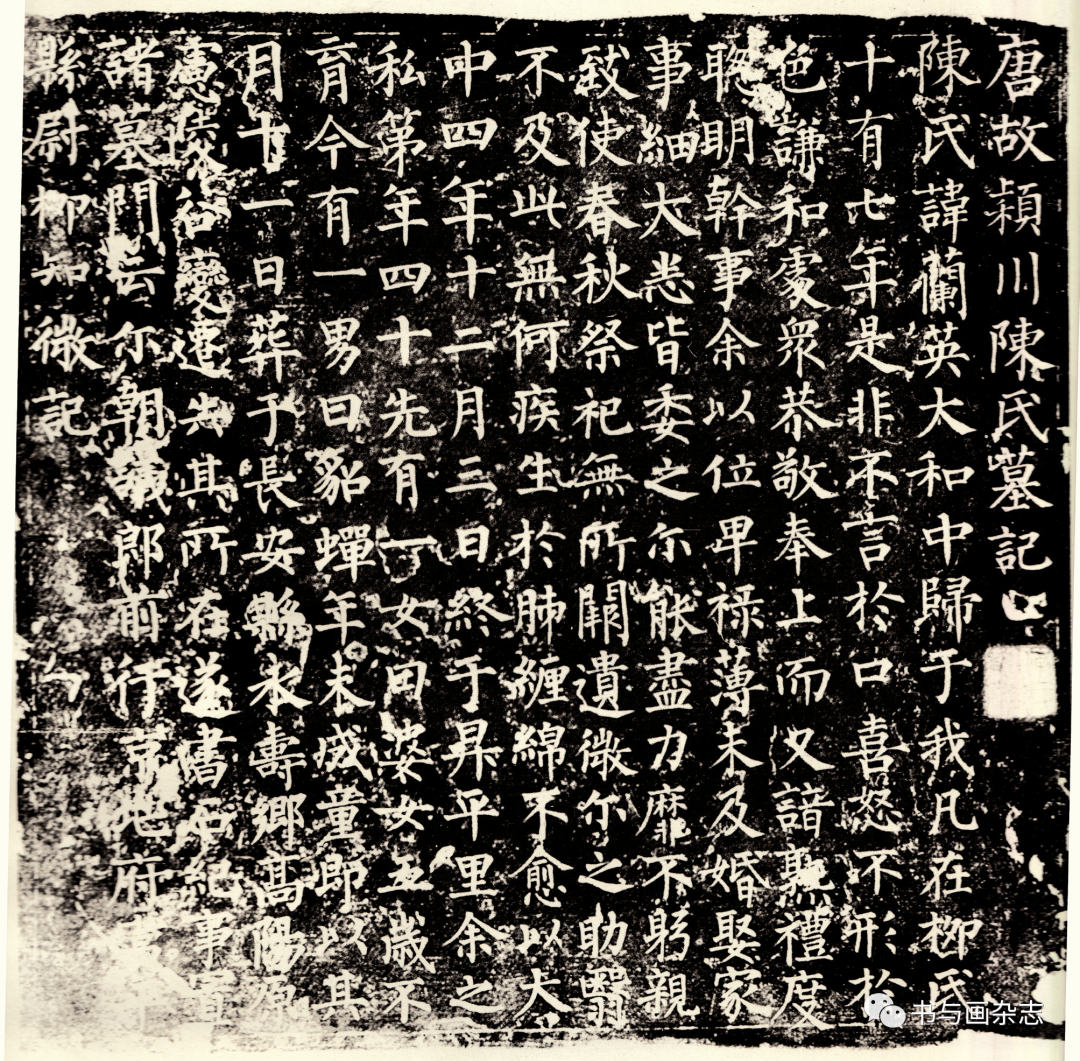 唐故潁川陳氏墓記
陳氏諱蘭英大和中歸于我凡在柳氏
十有七年是非不言於口喜怒不形於
色謙和處衆恭敬奉上而又諳熟禮度
聡明幹事余以位卑禄薄未及婚娶家
事細大悉皆委之尒能盡力靡不躬親
致使春秋祭祀無所闕遺微尒之助翳
不及此無何疾生於肺纏綿不愈以大
中四年十二月三日終于昇平里余之
私第年四十先有一女曰婆女五歲不
育今有一男曰貂蟬年未成童即以其
月十一日葬于長安縣永壽鄉高陽原
慮陵谷變遷失其所在遂書石紀事置
諸墓門云尒朝議郎前行京地府
縣尉柳知微記
书与画杂志